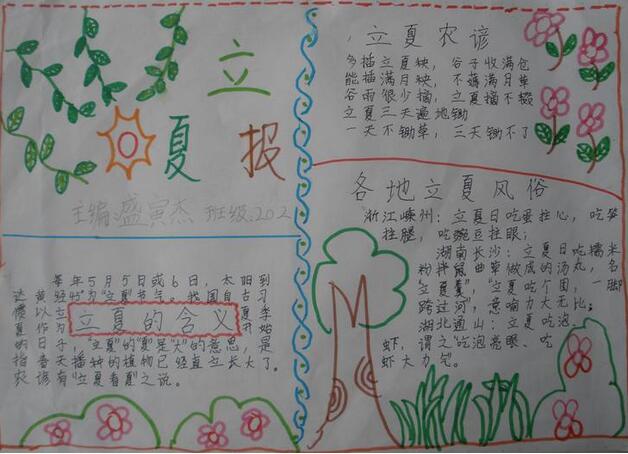 立
夏 报
主编:盛寅杰 班级:202
立夏农谚
多插立夏秧，谷子收满仓
能插满月秧，不薅满月草
谷雨很少插，立夏插不辍
立夏三天遍地锄
一天不锄草，三天锄不了
各地立夏风俗
浙江嵊州：立夏日吃蛋拄心，吃笋
拄腿，吃豌豆拄眼；
湖南长沙：立夏日吃糯米
粉拌鼠曲草做成的汤丸，名
"立夏羹"，"立夏吃个团，一脚
跨过河"，意喻力大无比；
湖北通山：立夏吃泡
虾，谓之"吃泡亮眼、吃
虾大力气。
立夏的含义
每年5月5日或6日，太阳到
达黄经为"立夏"节气。我国自古习
惯以立夏季
夏作为开始
的日子，"立夏"的"夏"是"大"的意思，是
指春天播种的植物已经直立长大了。
农谚有"立夏看夏"之说。